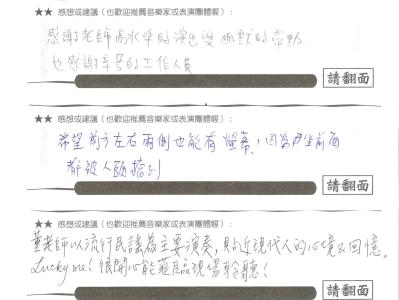 ★★ 感想或建議（也歡迎推薦音樂家或表演團體喔）：
感謝老師高水準的演出與幽默的帶動
也感謝辛苦的工作人員
請翻面
★★ 感想或建議（也歡迎推薦音樂家或表演團體喔）：
希望前方左右兩側也能有螢幕，因為座前面
都被人頭擋到
請翻面
★★ 感想或建議（也歡迎推薦音樂家或表演團體喔）：
董老師以流行民謠為主要演奏，貼近現代人的心境及回憶。
Lucky me！很開心能蒞臨現場聆聽！
請翻面